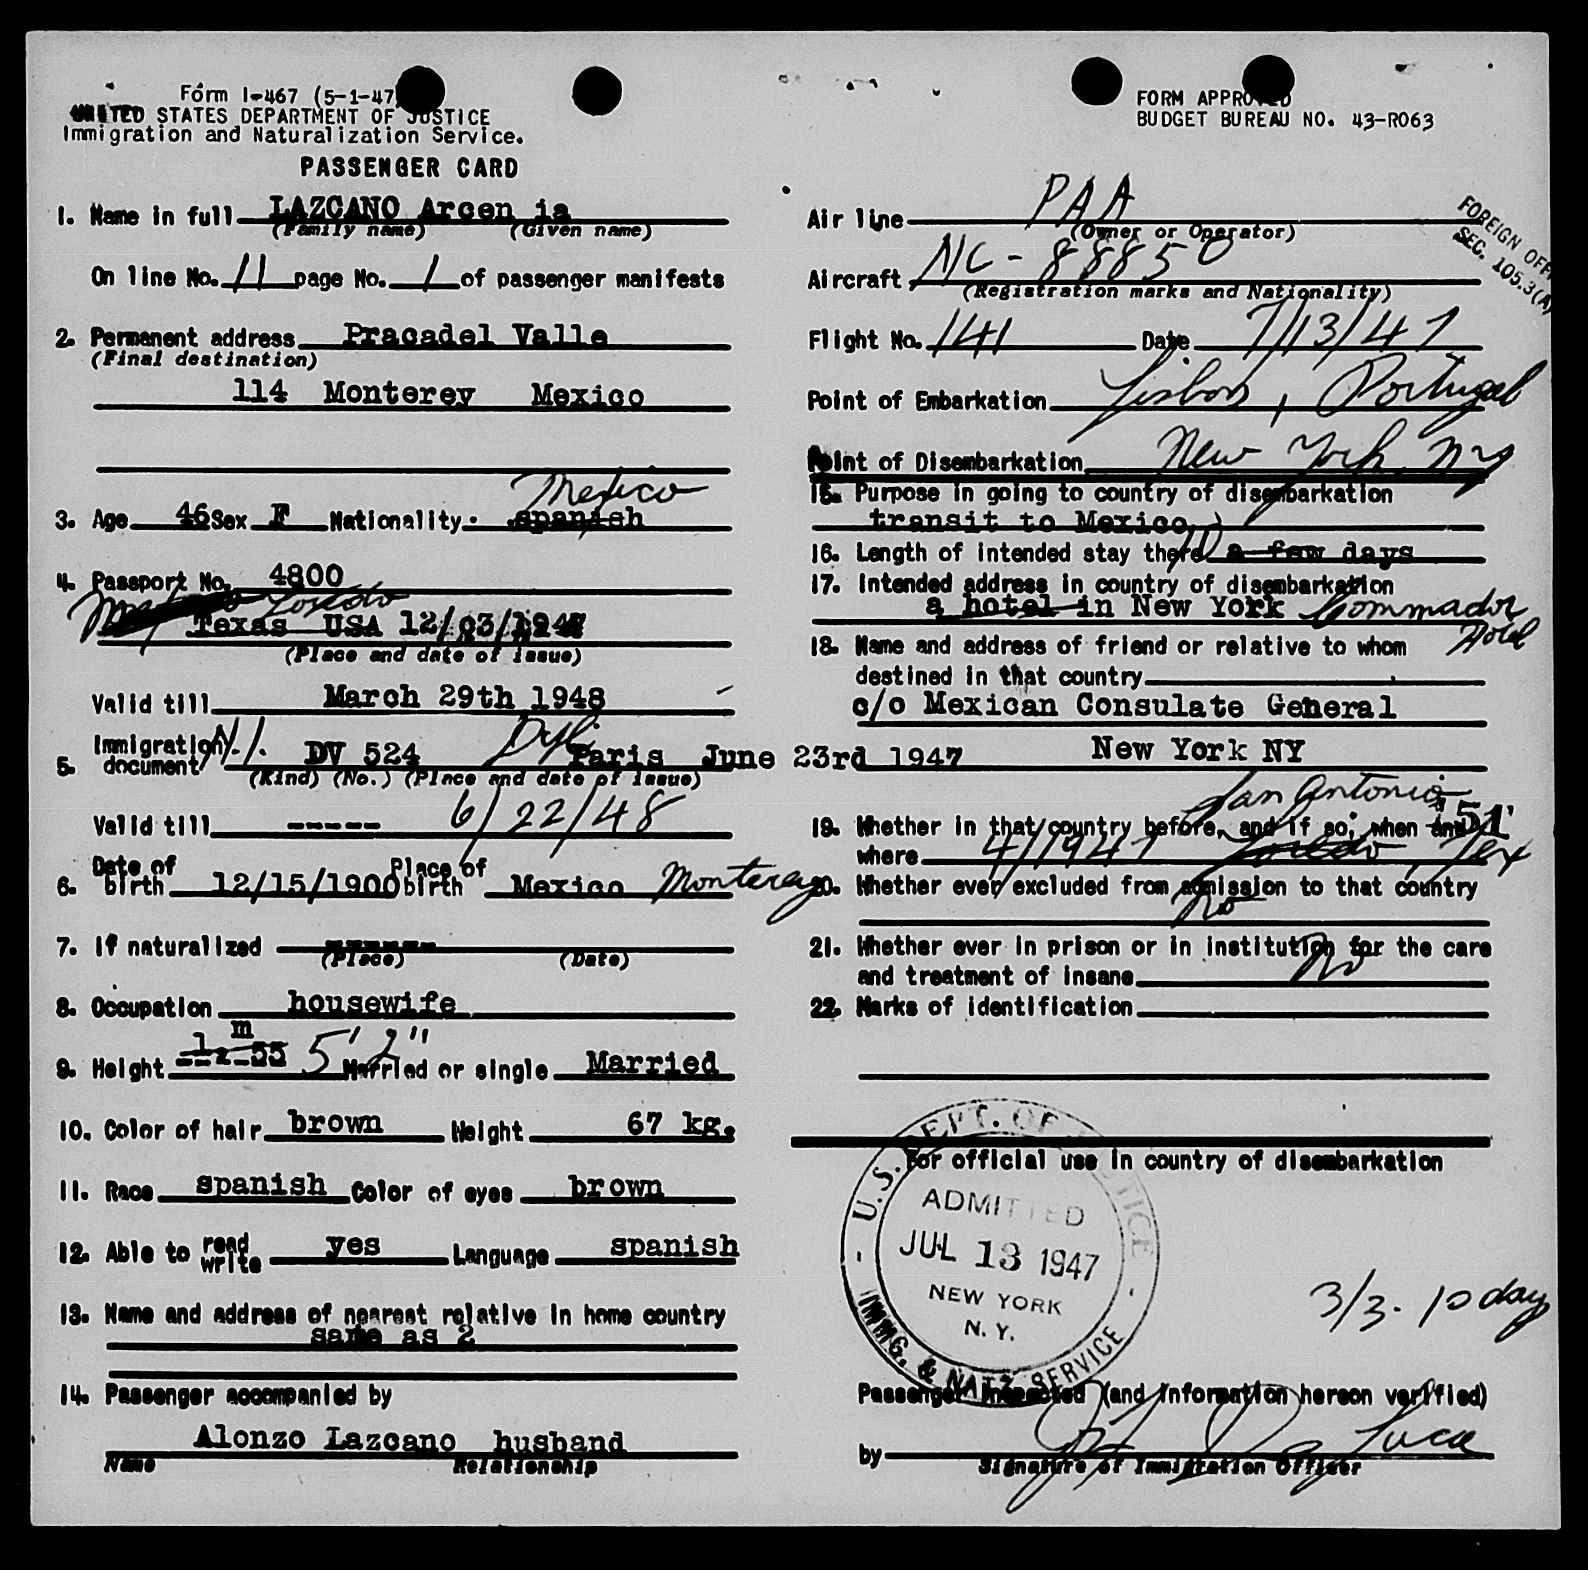 Form I-467 (5-1-47)
UNITED STATES DEPARTMENT OF JUSTICE
Immigration and Naturalization Service.
PASSENGER CARD
1. Name in full LAZCANO Arcen ia
(Family name) (Given name)
On line No. 11 page No. 1 of passenger manifests
2. Permanent address Pracadel Valle
(Final destination)
114 Monterey Mexico
Mexico
3. Age 46 Sex F Nationality spanish
4. Passport No. 4800
Texas USA 12/03/1947
(Place and date of issue)
Valid till March 29th 1948
5. Immigration document N.I. DV 524 Paris June 23rd 1947
(Kind) (No.) (Place and date of issue)
Valid till ----- 6/22/48
6. Date of birth 12/15/1900 Place of birth Mexico Monterey
7. If naturalized ------
(Place) (Date)
8. Occupation housewife
9. Height 1 m 55 5' 2" Married or single Married
10. Color of hair brown Weight 67 kg.
11. Race spanish Color of eyes brown
12. Able to read write yes Language spanish
13. Name and address of nearest relative in home country
same as 2
14. Passenger accompanied by
Alonzo Lazcano husband
Name Relationship
FORM APPROVED
BUDGET BUREAU NO. 43-R063
FOREIGN OFF
SEC. 105.3(A)
Air line PAA
(Owner or Operator)
Aircraft NC-88850
(Registration marks and Nationality)
Flight No. 141 Date 7/13/47
Point of Embarkation Lisbon, Portugal
Point of Disembarkation New York NY
15. Purpose in going to country of disembarkation
transit to Mexico
16. Length of intended stay there a few days
17. Intended address in country of disembarkation
a hotel in New York Commador Hotel
18. Name and address of friend or relative to whom
destined in that country
c/o Mexican Consulate General
New York NY
San Antonio
19. Whether in that country before, and if so, when and '51'
where 4/1947 Laredo, Tex
20. Whether ever excluded from admission to that country
No
21. Whether ever in prison or in institution for the care
and treatment of insane No
22. Marks of identification
For official use in country of disembarkation
U.S. DEPT. OF JUSTICE
ADMITTED
JUL 13 1947
NEW YORK
N. Y.
IMMG. & NATZ SERVICE
3/3. 10 day
Passenger Inspected (and information hereon verified)
by Luca
Signature of Immigration Officer